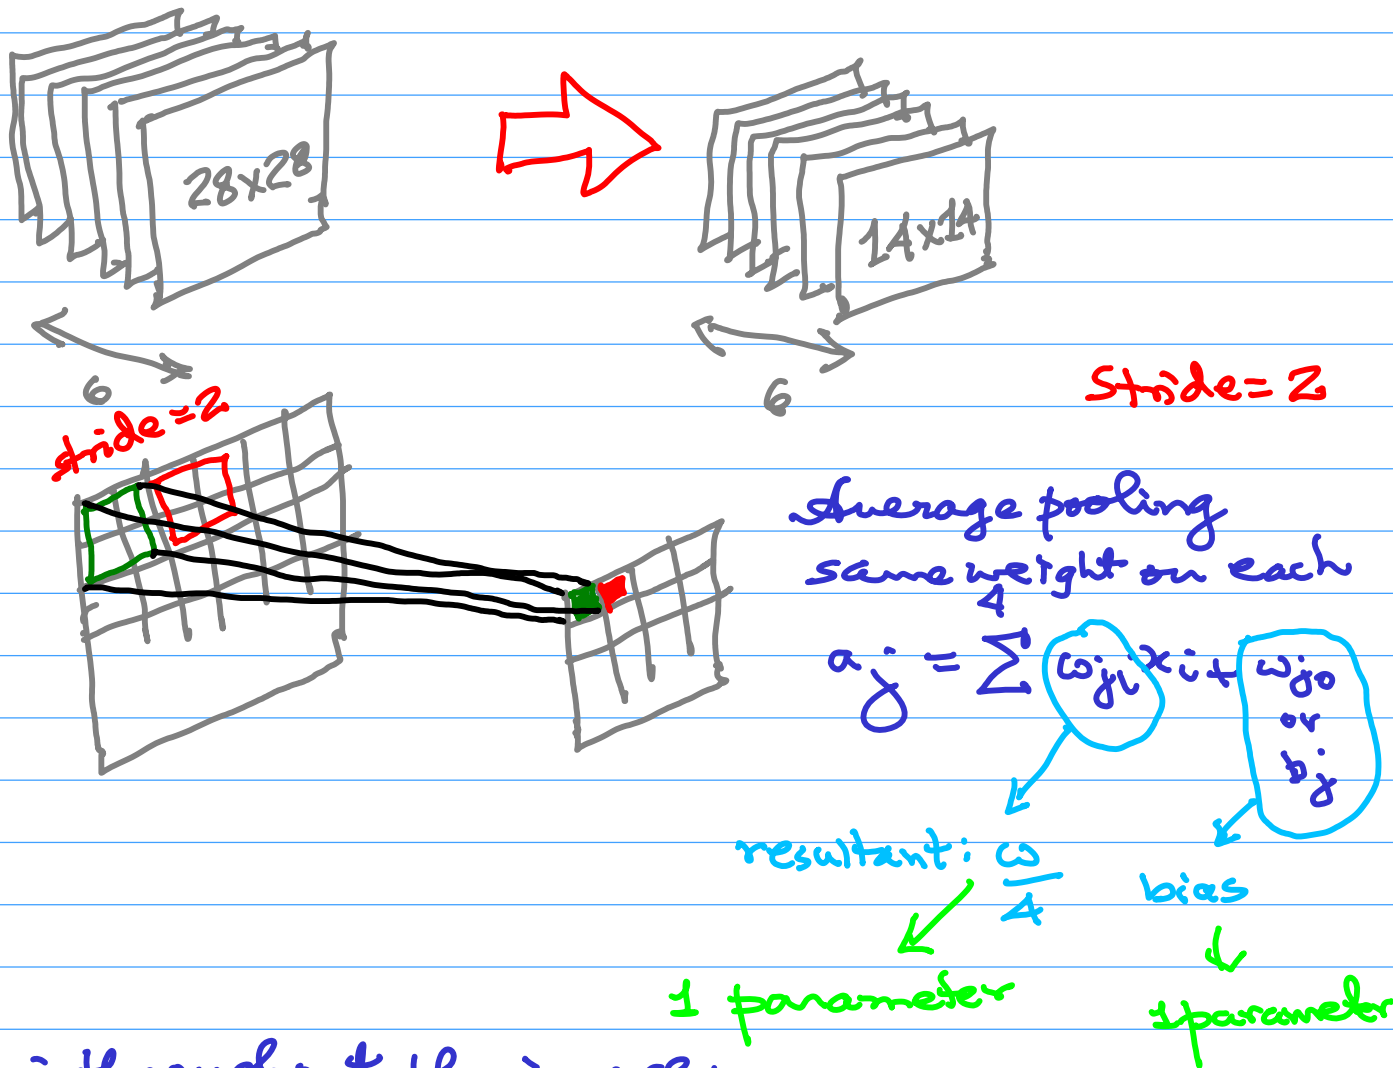 28x28
14x14
6
6
stride=2
Stride=2
Average pooling
same weight on each
4
aj = ∑ ωji xi + ωjo
or
bj
resultant: ω/4
bias
1 parameter
1 parameter